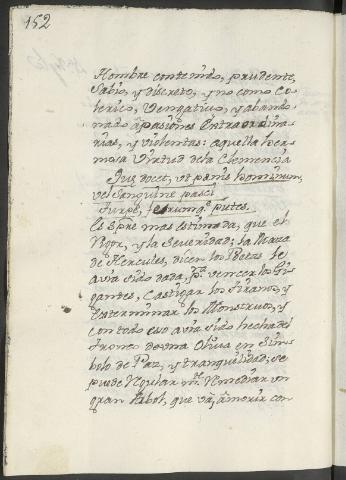 152
Hombre contenido, prudente,
Sabio, y discreto, y no como Co
lerico, Vengativo, y aband
nado a pasiones extraordina
rias, y violentas: aquella her
mosa Virtud de la Clemencia
Jus docet, ut penis hominum,
vel Sanguine pasci
Turpe, ferumq.e putes.
Es spre mas estimada, que el
Rigor, y la Severidad; la Maza
de Hercules, dicen los Poetas le
avia sido dada, pª vencer los Gi
gantes, Castigar los tiranos, y
exterminar los Monstruos, y
con todo eso avia sido hecha del
tronco de una Oliva en Sim
bolo de Paz, y tranquilidad; se
puede
gran Arbol, que va a morir con